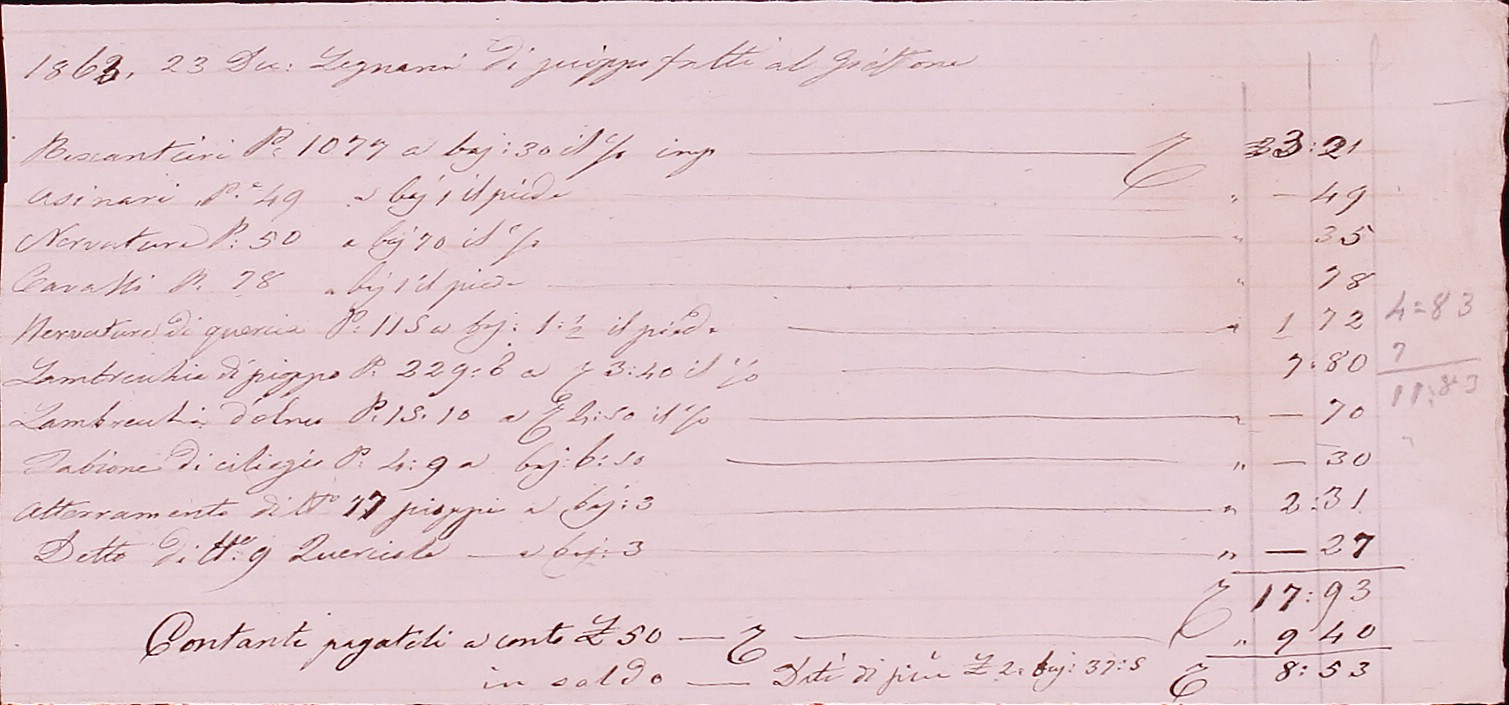 1863. 23 Dec: Legnami di pioppo fatti al Grottone
Bescantieri P. 1077 a baj: 30 il % imp 33:21
Asinari P. 49 a baj 1 il piede " — 49
Nervature P. 50 a baj 70 il % " 35
Cavalli P. 78 a baj 1 il piede " 78
Nervature di quercia P. 115 a baj: 1:½ il piede " 1 72
Lambrecchie di pioppo P. 229:6 a 3:40 il % 7:80
Lambrecchie d'olmo P. 15.10 a 4:50 il % " — 70
Tabione di ciliegio P. 4:9 a baj: 6:50 " — 30
Atterramento di No 77 pioppi a baj: 3 " 2:31
Detto di No 9 Querciole — a baj: 3 " — 27
17:93
Contanti pagateli a conto £ 50 — " 9 40
in saldo — Dati di più £ 2: baj: 37:5 8:53
4=83
7
11:83